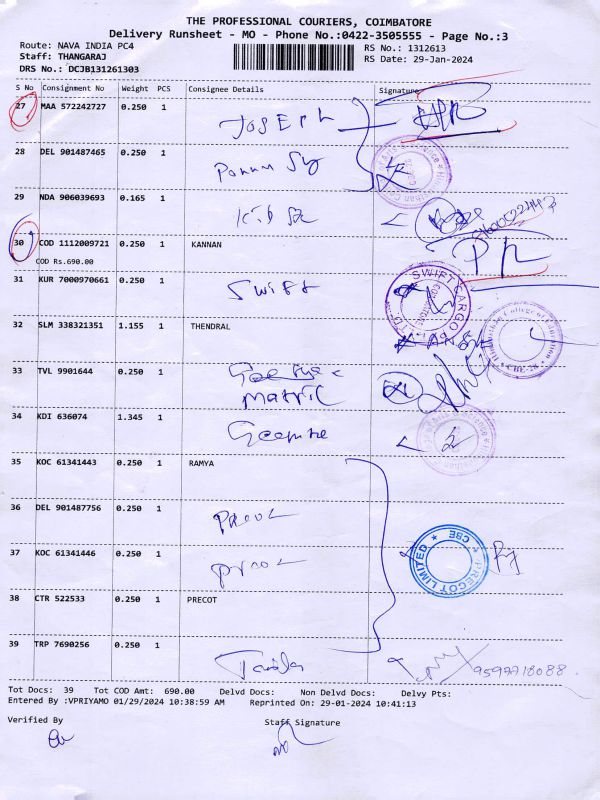 THE PROFESSIONAL COURIERS, COIMBATORE
Delivery Runsheet - MO - Phone No.:0422-3505555 - Page No.:3
Route: NAVA INDIA PC4 RS No.: 1312613
Staff: THANGARAJ RS Date: 29-Jan-2024
DRS No.: DCJB131261303
S No Consignment No Weight PCS Consignee Details Signature
27 MAA 572242727 0.250 1 JOSEPH
28 DEL 901487465 0.250 1
29 NDA 906039693 0.165 1
30 COD 1112009721 0.250 1 KANNAN
COD Rs.690.00
31 KUR 7000970661 0.250 1 Swift
SWIFT CARGO
32 SLM 338321351 1.155 1 THENDRAL
College of Education
CBE-28
33 TVL 9901644 0.250 1
matric
34 KDI 636074 1.345 1
35 KOC 61341443 0.250 1 RAMYA
36 DEL 901487756 0.250 1
37 KOC 61341446 0.250 1
PRECOT LIMITED CBE
38 CTR 522533 0.250 1 PRECOT
39 TRP 7690256 0.250 1
Tot Docs: 39 Tot COD Amt: 690.00 Delvd Docs: Non Delvd Docs: Delvy Pts:
Entered By :VPRIYAMO 01/29/2024 10:38:59 AM Reprinted On : 29-01-2024 10:41:13
Verified By Staff Signature